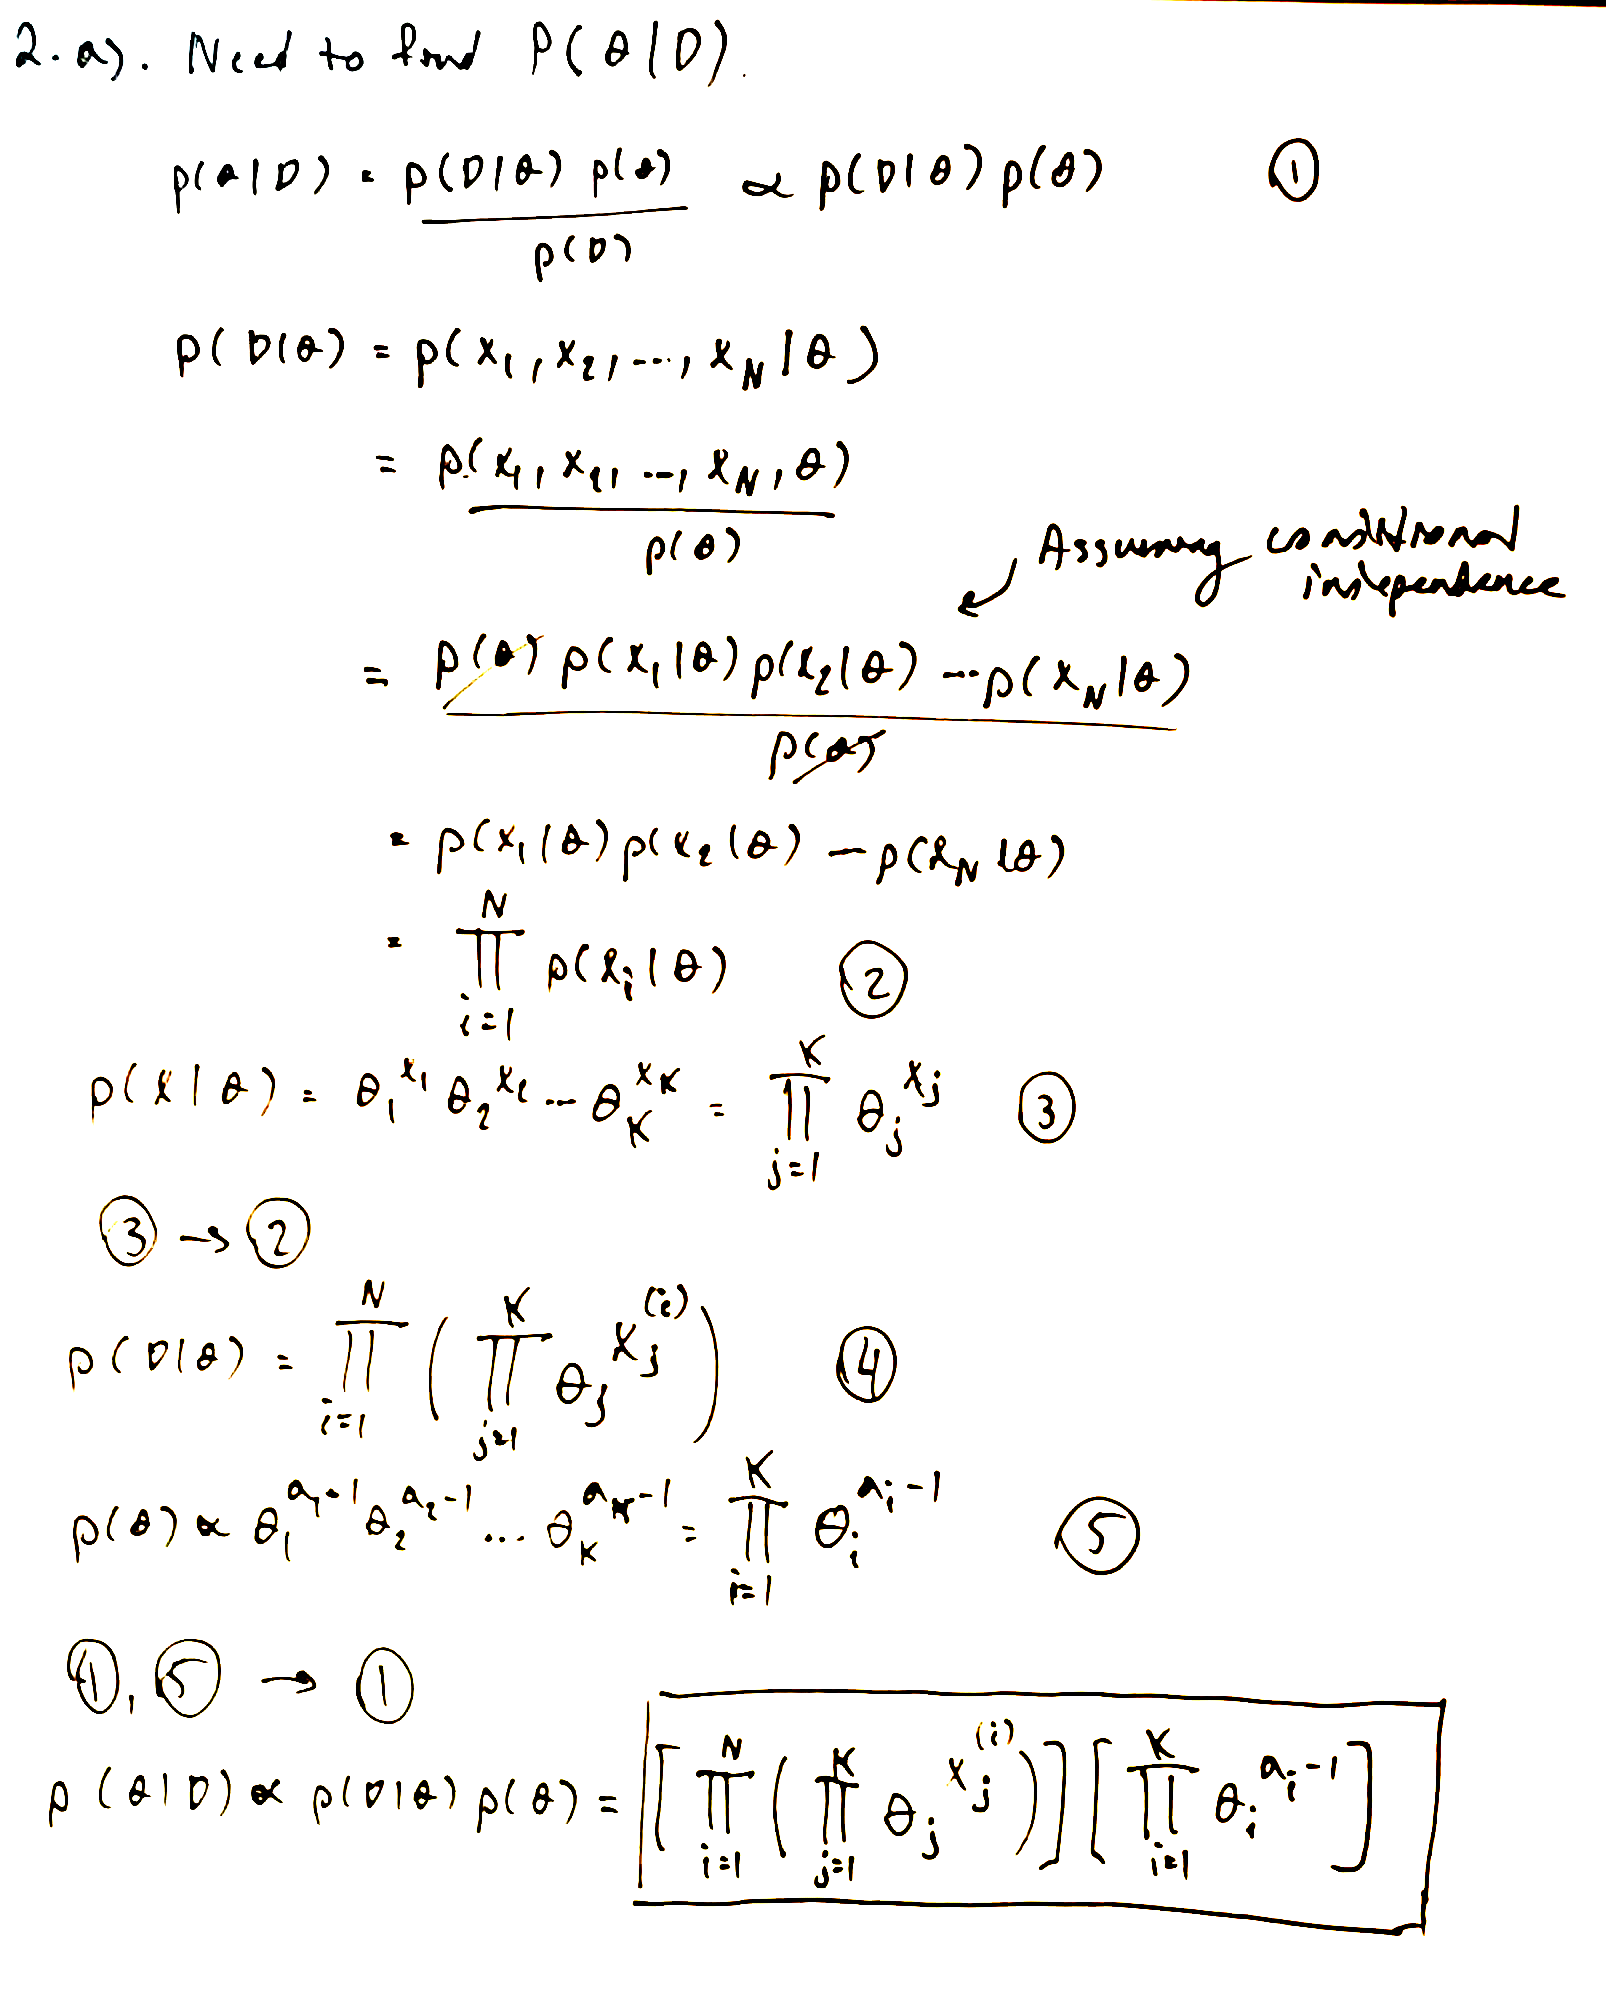 2.a). Need to find P(θ|D).
p(θ|D) = p(D|θ) p(θ) / p(D) ∝ p(D|θ) p(θ) ①
p(D|θ) = p(x₁, x₂, ..., x_N | θ)
= p(x₁, x₂, ..., x_N, θ) / p(θ)
Assuming conditional
independence
= p(θ) p(x₁|θ) p(x₂|θ) ... p(x_N|θ) / p(θ)
= p(x₁|θ) p(x₂|θ) — p(x_N|θ)
= ∏_{i=1}^{N} p(x_i|θ) ②
p(x|θ) = θ₁^{x₁} θ₂^{x₂} ... θ_K^{x_K} = ∏_{j=1}^{K} θ_j^{x_j} ③
③ → ②
p(D|θ) = ∏_{i=1}^{N} ( ∏_{j=1}^{K} θ_j^{x_j^{(i)}} ) ④
p(θ) ∝ θ₁^{a₁-1} θ₂^{a₂-1} ... θ_K^{a_K-1} = ∏_{i=1}^{K} θ_i^{a_i-1} ⑤
①, ⑤ → ①
p(θ|D) ∝ p(D|θ) p(θ) = [ ∏_{i=1}^{N} ( ∏_{j=1}^{K} θ_j^{x_j^{(i)}} ) ] [ ∏_{i=1}^{K} θ_i^{a_i-1} ]